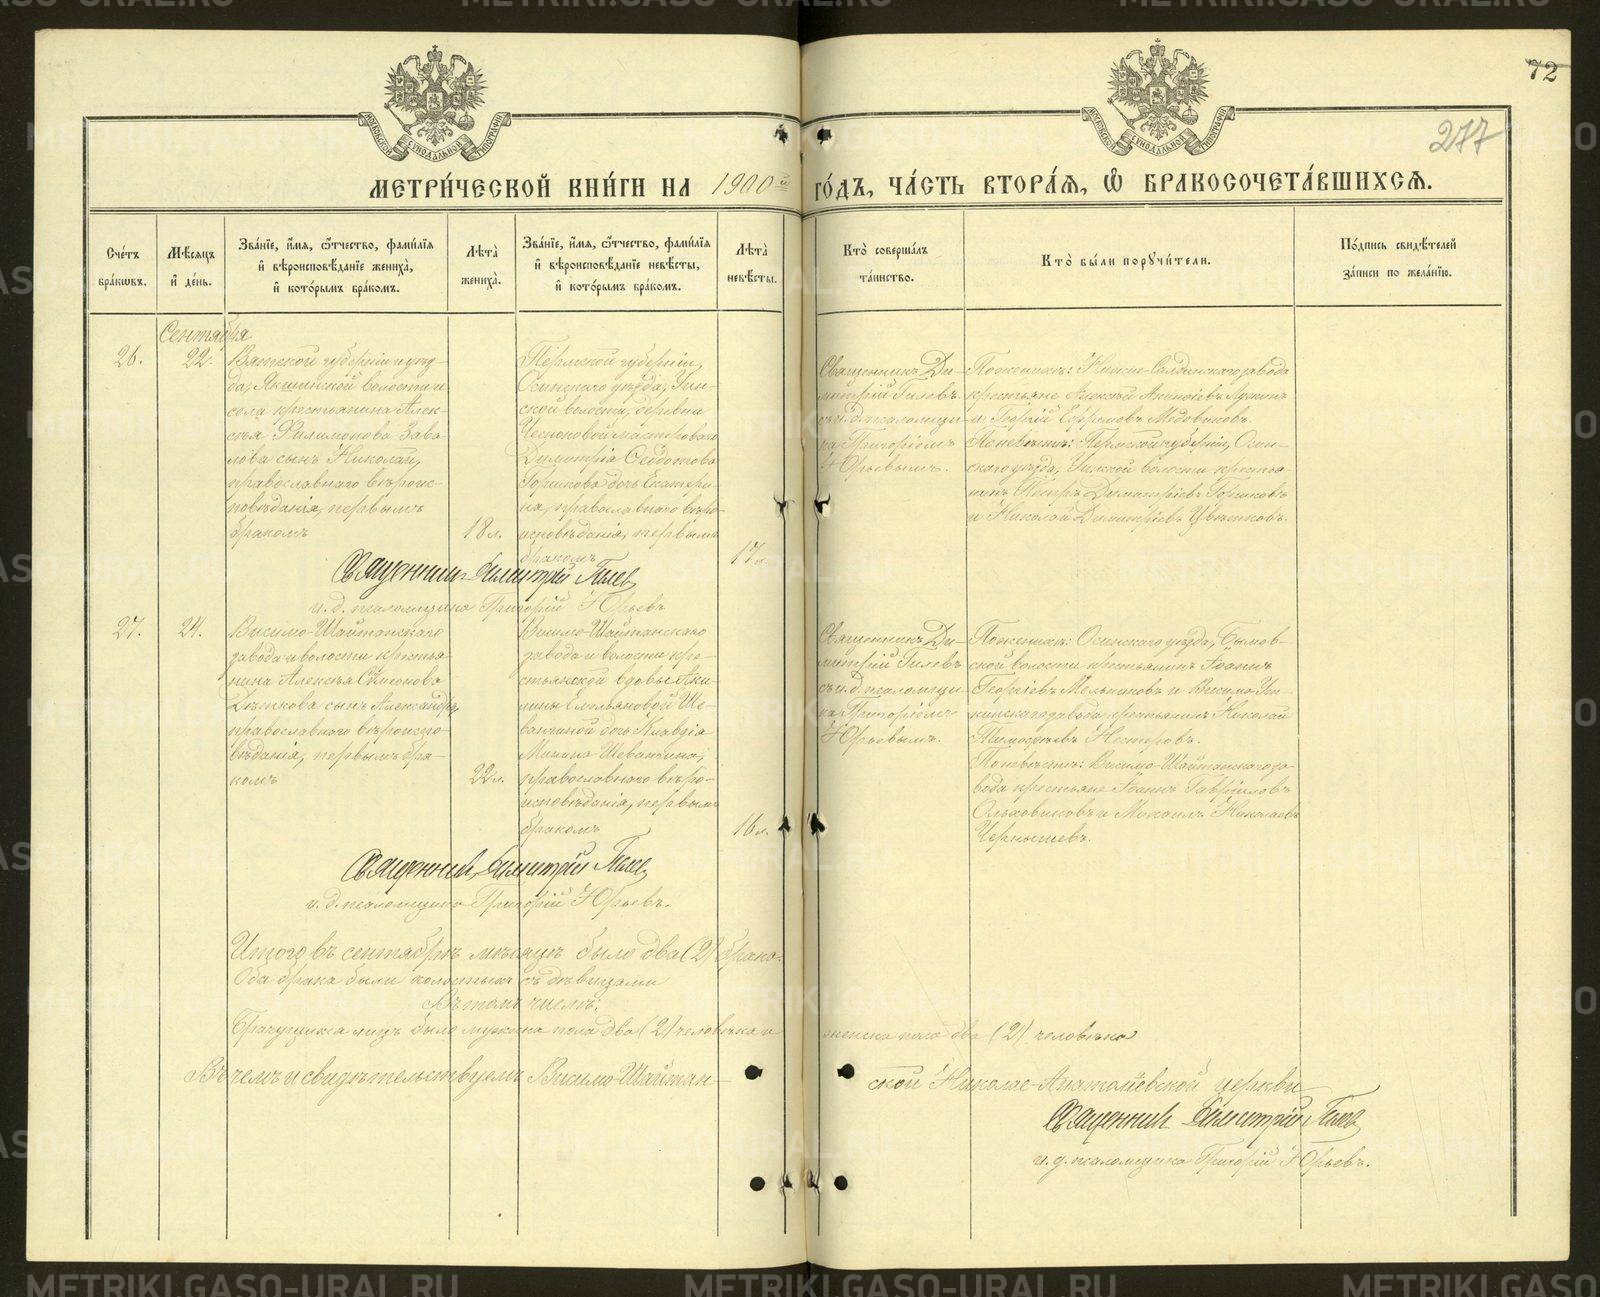 72
277
МОСКОВСКОЙ СѴНОДАЛЬНОЙ ТИПОГРАФІИ
МОСКОВСКОЙ СѴНОДАЛЬНОЙ ТИПОГРАФІИ
МЕТРИ́ЧЕСКОЙ КНИ́ГИ НА 1900й ГО́ДЪ, ЧА́СТЬ ВТОРА́Я, Ѡ БРАКОСОЧЕТА́ВШИХСЯ.
Сче́тъ
бра́кѡвъ.
Мѣ́сяцъ
и҆ де́нь.
Зва́нїе, и҆́мя, ѻ҆́тчество, фамилїя
и҆ вѣроисповѣданїе жениха̀,
и҆ кото́рымъ бра́комъ.
Лѣта̀
жениха̀.
Зва́нїе, и҆́мя, ѻ҆́тчество, фамилїя
и҆ вѣроисповѣданїе невѣ́сты,
и҆ кото́рымъ бра́комъ.
Лѣта̀
невѣ́сты.
Кто̀ соверша́лъ
та́инство.
Кто̀ бы́ли поручи́тели.
По́дпись свидѣтелей
за́писи по жела́нїю.
Сентября
26.
22.
Вятской губерніи и уѣз-
да, Якшинской волости и
села крестьянина Алек-
сѣя Филимонова Зава-
лова сынъ Николай,
православнаго вѣроис-
повѣданія, первымъ
бракомъ
18 л.
Пермской губерніи,
Осинскаго уѣзда, Уин-
ской волости, деревни
Чесноковой мастероваго
Димитрія Ѳедотова
Горшкова дочь Екатери-
на, православнаго вѣро-
исповѣданія, первымъ
бракомъ
17 л.
Священникъ Ди-
митрій Гилевъ
съ и. д. псаломщи-
ка Григоріемъ
Юрьевымъ.
По женихѣ: Нижне-Салдинскаго завода
крестьяне Алексѣй Акинѳіевъ Лужинъ
и Георгій Ефремовъ Медовиковъ
По невѣстѣ: Пермской губерніи, Осин-
скаго уѣзда, Уинской волости крестья-
нинъ Петръ Димитріевъ Горшковъ
и Николай Димитріевъ Цвѣтковъ.
Священникъ Димитрій Гилев
и. д. псаломщика Григорій Юрьевъ
27.
24.
Висимо-Шайтанскаго
завода и волости крестья-
нина Алексѣя Симонова
Дѣткова сынъ Александръ,
православнаго вѣроиспо-
вѣданія, первымъ бра-
комъ
22 л.
Висимо-Шайтанскаго
завода и волости кре-
стьянской вдовы Аки-
лины Емельяновой Ше-
ванчиной дочь Клавдія
православнаго вѣро-
исповѣданія, первымъ
бракомъ
16 л.
Священникъ Ди-
митрій Гилевъ
съ и. д. псаломщи-
ка Григоріемъ
Юрьевымъ.
По женихѣ: Осинскаго уѣзда, Бымов-
ской волости крестьянинъ Іоаннъ
Георгіевъ Мельниковъ и Висимо-Ут-
кинскаго завода крестьянинъ Николай
Тимоѳеевъ Нестеровъ.
По невѣстѣ: Висимо-Шайтанскаго за-
вода крестьяне Іоаннъ Гавріиловъ
Ольховиковъ и Михаилъ Николаевъ
Чернышевъ.
Священникъ Димитрій Гилев
и. д. псаломщика Григорій Юрьевъ.
Итого въ сентябрѣ мѣсяцѣ было два (2) брака.
Оба брака были холостыхъ съ дѣвицами
Въ томъ числѣ:
Брачущихся лицъ было мужска пола два (2) человѣка и женска пола два (2) человѣка
Въ чемъ и свидѣтельствуемъ Висимо-Шайтан-
ской Николае-Анатоліевской церкви
Священникъ Димитрій Гилев
и. д. псаломщика Григорій Юрьевъ.
METRIKI.GASO-URAL.RU